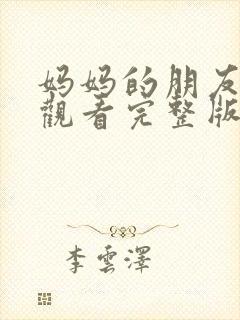 妈妈的朋友
觀看完整版
李雲澤